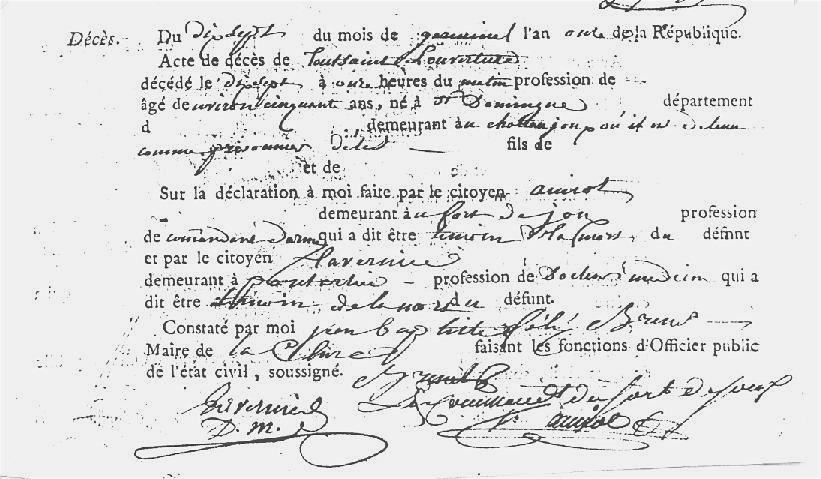 Décès. Du dix sept du mois de germinal l'an onze de la République.
Acte de décès de Toussaint Louverture
décédé le dix sept à onze heures du matin profession de
âgé de environ cinquant ans, né à St Domingue département
d demeurant à au chateau joux où il est detenu
comme prisonnier d'état fils de
et de
Sur la déclaration à moi faite par le citoyen amiot
demeurant à u fort de jou profession
de comandant d'arme qui a dit être temoin de la mors du défunt
et par le citoyen tavernier
demeurant à pontarlier profession de Docteur medecin qui a
dit être temoin de la mors du défunt.
Constaté par moi jean baptiste
Maire de la Cluse faisant les fonctions d'Officier public
de l'état civil, soussigné.
Le Commandant du fort de joux
tavernier amiot
D. m.